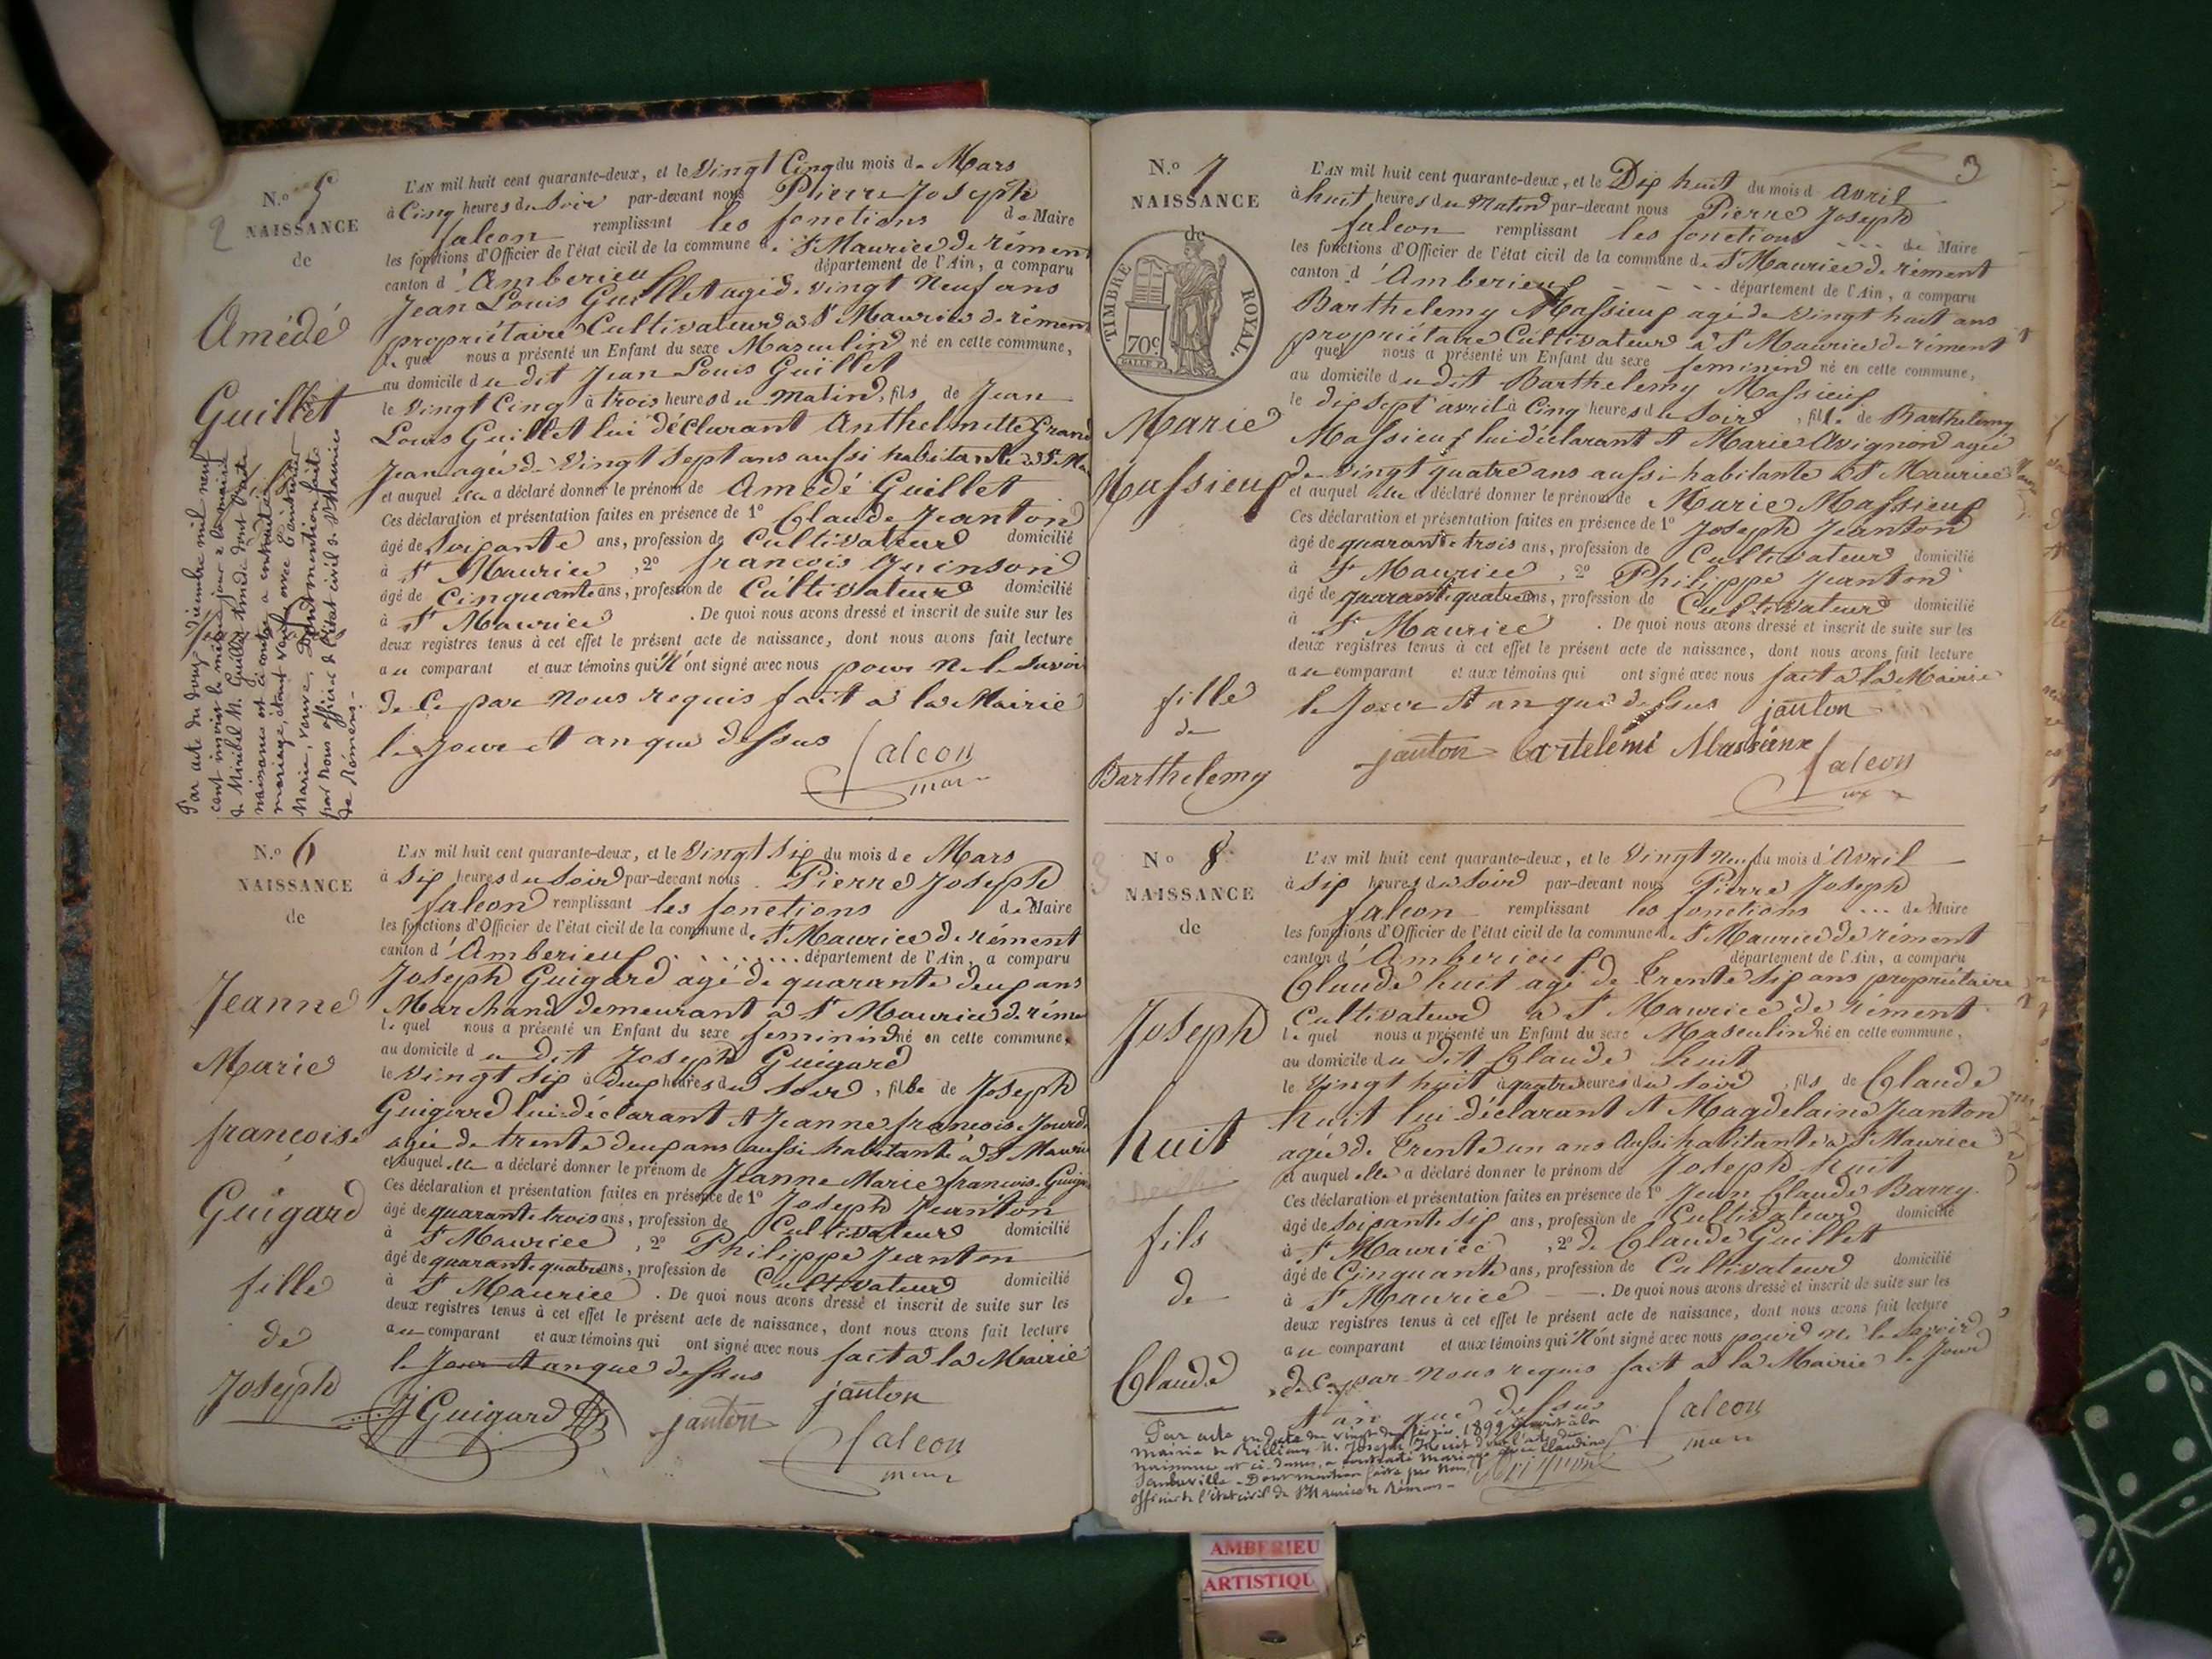 N.º 5
NAISSANCE
de
Amédé
Guillet
2
L'AN mil huit cent quarante-deux, et le Vingt Cinq du mois de Mars
à Cinq heures du Soir par-devant nous Pierre Joseph
falcon remplissant les fonctions de Maire
les fonctions d'Officier de l'état civil de la commune de St Maurice de rément
canton d'Amberieu département de l'Ain, a comparu
Jean Louis Guillet agé de vingt Neuf ans
propriétaire Cultivateur à St Maurice de rément
le quel nous a présenté un Enfant du sexe Masculin né en cette commune,
au domicile du dit Jean Louis Guillet
le Vingt Cinq à trois heures du Matin, fils de Jean
Louis Guillet lui déclarant Anthelmette Grand
Jean agée de Vingt Sept ans aussi habitante à St Ma
et auquel elle a déclaré donner le prénom de Amédé Guillet
Ces déclaration et présentation faites en présence de 1º Claude Jeanton
âgé de Soixante ans, profession de Cultivateur domicilié
à St Maurice, 2º francois Guinson
âgé de Cinquante ans, profession de Cultivateur domicilié
à St Maurice. De quoi nous avons dressé et inscrit de suite sur les
deux registres tenus à cet effet le présent acte de naissance, dont nous avons fait lecture
au comparant et aux témoins qui N'ont signé avec nous pour Ne le Savoir
de Ce par Nous requis fait à la Mairie
le Jour et an que dessus
falcon
maire
Par acte du douze décembre mil neuf
cent inscrit le même jour à la mairie
de Miribel M. Guillet Amédé dont l'acte
naissance est ci contre a contracté
mariage, étant veuf avec
Marie, veuve. Dont mention faite
par Nous officier de l'état civil de St Maurice
de Rémens.
N.º 6
NAISSANCE
de
Jeanne
Marie
françoise
Guigard
fille
de
Joseph
L'AN mil huit cent quarante-deux, et le Vingt Six du mois de Mars
à Six heures du Soir par-devant nous Pierre Joseph
falcon remplissant les fonctions de Maire
les fonctions d'Officier de l'état civil de la commune de St Maurice de rément
canton d'Amberieux département de l'Ain, a comparu
Joseph Guigard agé de quarante deux ans
Marchand demeurant à St Maurice de réme
le quel nous a présenté un Enfant du sexe feminin né en cette commune,
au domicile du dit Joseph Guigard
le Vingt Six à deux heures du Soir, fille de Joseph
Guigard lui déclarant et Jeanne francoise Jourd
agée de trente deux ans aussi habitante à St Mauri
et auquel elle a déclaré donner le prénom de Jeanne Marie francoise Guiga
Ces déclaration et présentation faites en présence de 1º Joseph Jeanton
âgé de quarante trois ans, profession de Cultivateur domicilié
à St Maurice, 2º Philippe Jeanton
âgé de quarante quatre ans, profession de Cultivateur domicilié
à St Maurice. De quoi nous avons dressé et inscrit de suite sur les
deux registres tenus à cet effet le présent acte de naissance, dont nous avons fait lecture
au comparant et aux témoins qui ont signé avec nous fait à la Mairie
le Jour et an que dessus
J Guigard janton janton
falcon
maire
3
N.º 7
NAISSANCE
de
TIMBRE ROYAL.
70c.
Marie
Massieux
fille
de
Barthelemy
L'AN mil huit cent quarante-deux, et le Dix huit du mois d'avril
à huit heures du Matin par-devant nous Pierre Joseph
falcon remplissant les fonctions de Maire
les fonctions d'Officier de l'état civil de la commune de St Maurice de rément
canton d'Amberieux département de l'Ain, a comparu
Barthelemy Massieux agé de Vingt huit ans
propriétaire Cultivateur à St Maurice de rément
quel nous a présenté un Enfant du sexe feminin né en cette commune,
au domicile du dit Barthelemy Massieux
le dix sept avril à Cinq heures du Soir, fille de Barthelemy
Massieux lui déclarant et Marie Avignon agée
de Vingt quatre ans aussi habitante à St Maurice
et auquel elle a déclaré donner le prénom de Marie Massieux
Ces déclaration et présentation faites en présence de 1º Joseph Jeanton
âgé de quarante trois ans, profession de Cultivateur domicilié
à St Maurice, 2º Philippe Jeanton
âgé de quarante quatre ans, profession de Cultivateur domicilié
à St Maurice. De quoi nous avons dressé et inscrit de suite sur les
deux registres tenus à cet effet le présent acte de naissance, dont nous avons fait lecture
au comparant et aux témoins qui ont signé avec nous fait à la Mairie
le Jour et an que dessus janton
janton bartelemi Massieux
falcon
N.º 8
NAISSANCE
de
Joseph
huit
fils
de
Claude
L'AN mil huit cent quarante-deux, et le Vingt Neuf du mois d'Avril
à Six heures du Soir par-devant nous Pierre Joseph
falcon remplissant les fonctions de Maire
les fonctions d'Officier de l'état civil de la commune de St Maurice de rément
canton d'Amberieux département de l'Ain, a comparu
Claude huit agé de Trente Six ans propriétaire
Cultivateur à St Maurice de rément
le quel nous a présenté un Enfant du sexe Masculin né en cette commune,
au domicile du dit Claude huit
le Vingt huit à quatre heures du Soir, fils de Claude
huit lui déclarant et Magdelaine Jeanton
agée de Trente un ans Aussi habitante à St Maurice
et auquel elle a déclaré donner le prénom de Joseph huit
Ces déclaration et présentation faites en présence de 1º Jean Claude Barry
âgé de Soixante Six ans, profession de Cultivateur domicilié
à St Maurice, 2º de Claude Guillet
âgé de Cinquante ans, profession de Cultivateur domicilié
à St Maurice. De quoi nous avons dressé et inscrit de suite sur les
deux registres tenus à cet effet le présent acte de naissance, dont nous avons fait lecture
au comparant et aux témoins qui N'ont signé avec nous pour ne le Savoir
de Ce par Nous requis fait à la Mairie le Jour
et an que dessus falcon
maire
Par acte en date du vingt deux 1899 inscrit à la
mairie de Rillieux M. Joseph Huit dont l'acte de
naissance est ci-dessus, a contracté mariage avec Claudine
Dont mention faite par Nous
officier de l'état civil de St Maurice de Rémens
AMBERIEU
ARTISTIQU